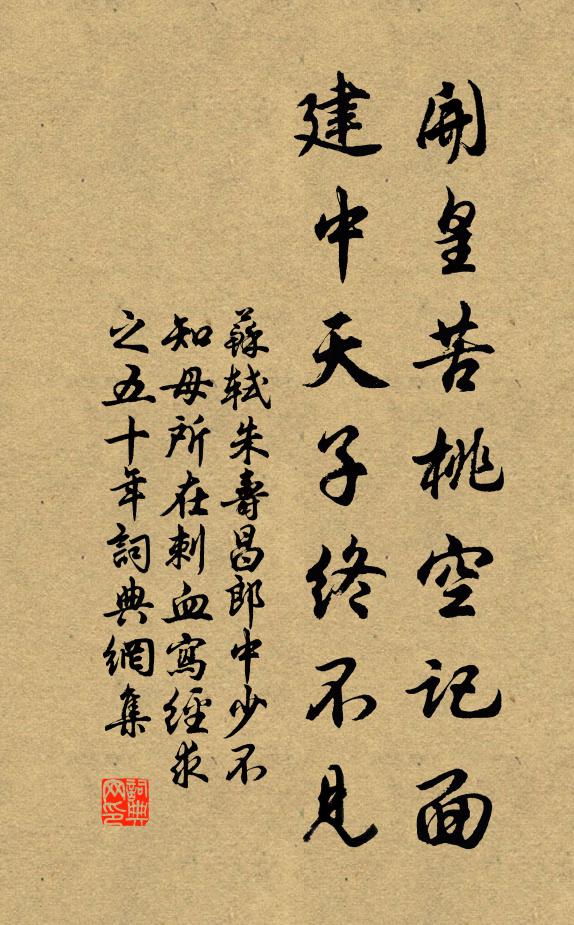 開皇苦桃空記面
建中天子終不見
蘇軾朱壽昌郎中少不
知母所在刺血寫經求
之五十年詞典網集
詞典網印